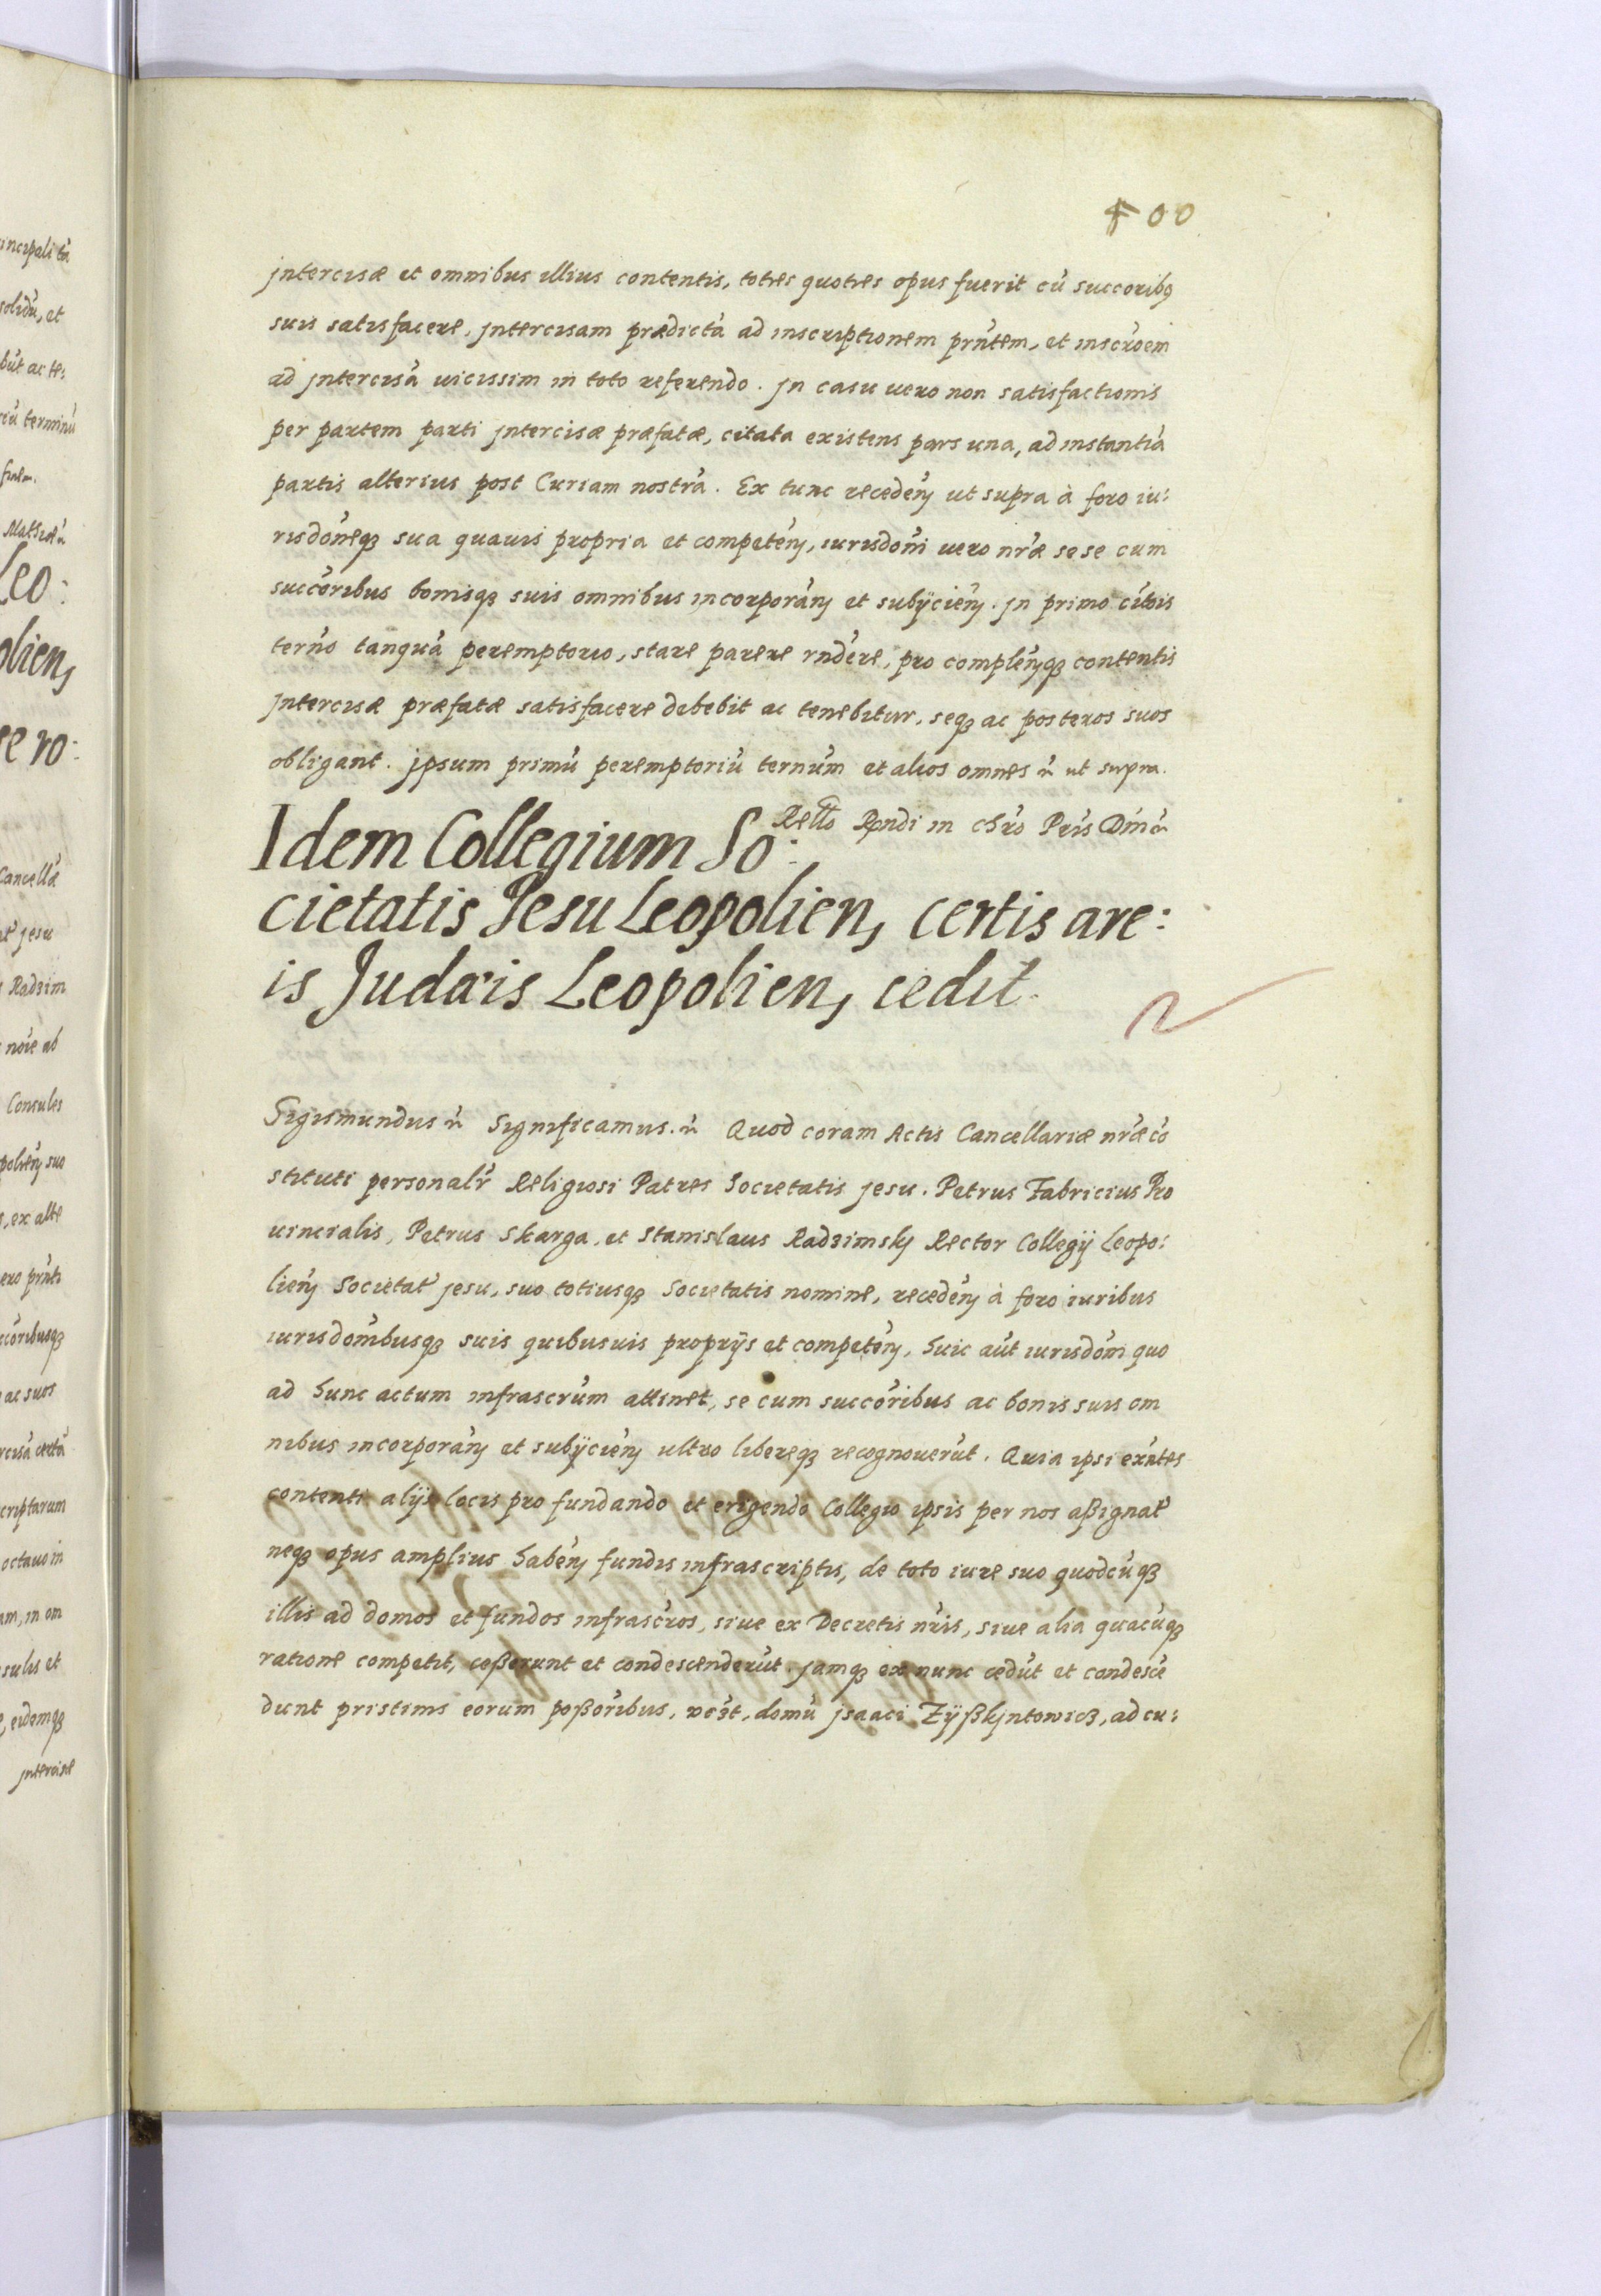 400
jntercisæ et omnibus illius contentis, toties quoties opus fuerit cū succoribꝫ
suis satisfacere, jntercisam prædictā ad inscriptionem prñtem, et inscrōem
ad jntercisā uicissim in toto referendo. jn casu uero non satisfactionis
per partem parti jntercisæ præfatæ, citata existens pars una, ad instantiā
partis alterius post Curiam nostrā. Ex tunc receden̄ ut supra à foro iu:
risdōneqꝫ sua quauis propria et competen̄, iurisdōni uero nr̄æ se se cum
succōribus bonisqꝫ suis omnibus incorporan̄ et subÿcien̄. jn primo citōis
termo tanquā peremptorio, stare parere rndere, pro complen̄qꝫ contentis
jntercisæ præfatæ satisfacere debebit ac tenebitur, seqꝫ ac posteros suos
obligant. jpsum primū peremptoriū ternum et alios omnes ut supra.
Rello Rndi in chr̄o Pr̄is Dni
Idem Collegium So:
cietatis Jesu Leopolien, certis are:
is Judæis Leopolien, cedit.
Sigismundus Significamus. Quod coram Actis Cancellariæ nr̄æ cō
stituti personalr̄ Religiosi Patres Societatis jesu. Petrus Fabricius Pro
uincialis, Petrus Skarga, et Stanislaus Radzimskj Rector Collegij Leopo:
lien̄ Societat̄ jesu, suo totiusqꝫ Societatis nomine, receden̄ à foro iuribus
iurisdōnibusqꝫ suis quibusuis proprijs et competen̄, huic aūt iurisdōni quo
ad hunc actum infrascr̄um attinet, se cum succōribus ac bonis suis om
nibus incorporan̄ et subÿcien̄ ultro libereqꝫ recognouerūt. Quia ipsi exn̄tes
contenti alÿs locis pro fundando et erigendo Collegio ipsis per nos aßignat̄
neqꝫ opus amplius haben̄ fundis infrascriptis, de toto iure suo quodcūqꝫ
illis ad domos et fundos infrascr̄os, siue ex Decretis nr̄is, siue alia quacūqꝫ
ratione competit, ceßerunt et condescenderūt. jamqꝫ ex nunc cedūt et condescē
dunt pristinis eorum poßōribus, domū jsaaci Zÿßkjntowicz, ad cu: